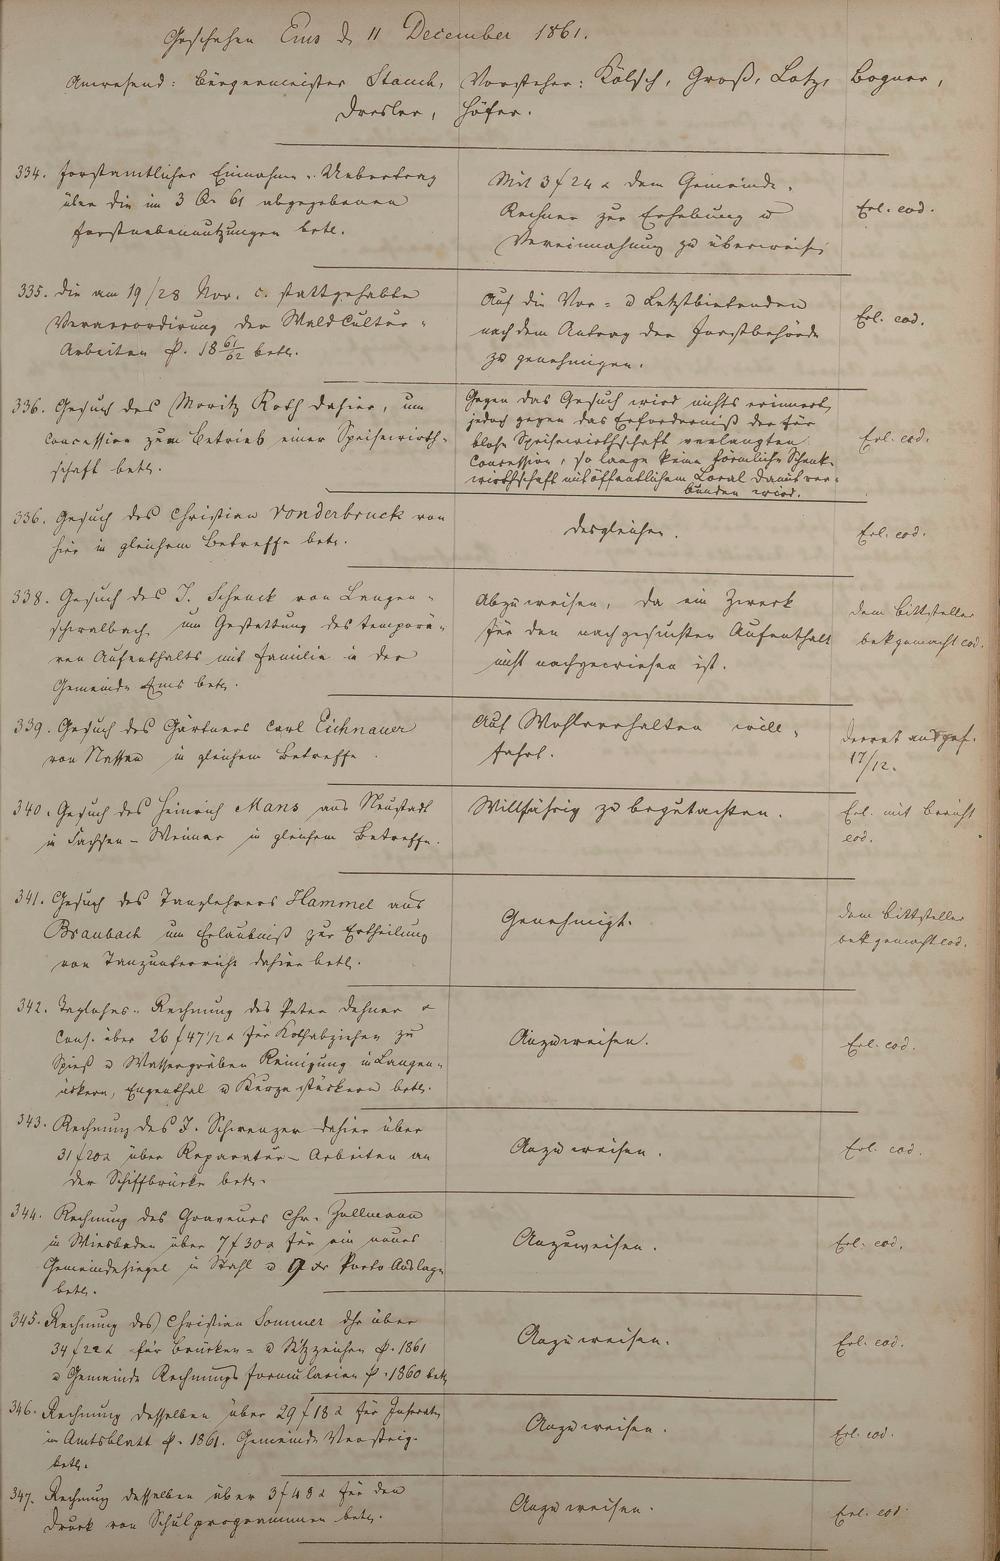 Geschehen Ems d 11 December 1861.
Anwesend: Bürgermeister Stauch, Vorsteher: Kölsch, Groß, Lotz, Bogner,
Dresler, Höfer.
334. Forstamtlicher Einnahme-Uebertrag
über die im 3 Qu 61 abgegebenen
Forstnebennutzungen betr.
Mit 3 f 24 x dem Gemeinde-
Rechner zur Erhebung u
Vereinnahmung zu überweisen
Erl. eod.
335. Die am 19/28 Nov. c. stattgehabte
Veraccordirung der Wald Cultur-
Arbeiten p. 18 61/62 betr.
Auf die Vor- u Letztbietenden
nach dem Antrag der Forstbehörde
zu genehmigen.
Erl. eod.
336. Gesuch des Moritz Roth dahier, um
Concession zum Betrieb einer Speisewirth-
schaft betr.
Gegen das Gesuch wird nichts erinnert,
jedoch gegen das Erforderniß der für
blose Speisewirthschaft verlangten
Concession, so lange keine förmliche Schenk-
wirthschaft mit öffentlichem Local damit ver-
bunden wird.
Erl. eod.
336. Gesuch des Christian Vonderbruck von
hier in gleichem Betreffe betr.
Desgleichen.
Erl. eod.
338. Gesuch des J. Schenck von Langen-
schwalbach um Gestattung des temporä-
ren Aufenthalts mit Familie in der
Gemeinde Ems betr.
Abzuweisen, da ein Zweck
für den nachgesuchten Aufenthalt
nicht nachgewiesen ist.
dem Bittsteller
bekgemacht eod.
339. Gesuch des Gärtners Carl Eichnauer
von Nassau in gleichem Betreffe.
Auf Wohlverhalten will-
fahrt.
Decret ausgef.
17/12.
340. Gesuch des Heinrich Mans aus Neustadt
in Sachsen-Weimar in gleichem Betreffe.
Willfährig zu begutachten.
Erl. mit Bericht
eod.
341. Gesuch des Tanzlehrers Hammel aus
Braubach um Erlaubniß zur Ertheilung
von Tanzunterricht dahier betr.
Genehmigt.
dem Bittsteller
bekgemacht eod.
342. Taglohns-Rechnung des Peter Dehner &
Cons. über 26 f 47 1/2 x für Kothabziehen zu
Spieß u Wassergräben Reinigung in Langen-
äckern, Engenthal u Kurze stückern betr.
Anzuweisen.
Erl. eod.
343. Rechnung des J. Schwenzer dahier über
31 f 20 x über Reparatur-Arbeiten an
der Schiffbrücke betr.
Anzuweisen.
Erl. eod.
344. Rechnung des Graveurs Chr. Zollmann
in Wiesbaden über 7 f 30 x für ein neues
Gemeindesiegel in Stahl u 9 xr Porto Auslage
betr.
Anzuweisen.
Erl. eod.
345. Rechnung des Christian Sommer dhr über
34 f 22 x für Brücken- u zeichen p. 1861
u Gemeinde Rechnungs Formularien p. 1860 betr
Anzuweisen.
Erl. eod.
346. Rechnung desselben über 29 f 18 x für Inserate
im Amtsblatt p. 1861. Gemeinde Versteig.
betr.
Anzuweisen.
Erl. eod.
347. Rechnung desselben über 3 f 48 x für den
Druck von Schulprogrammen betr.
Anzuweisen.
Erl. eod.